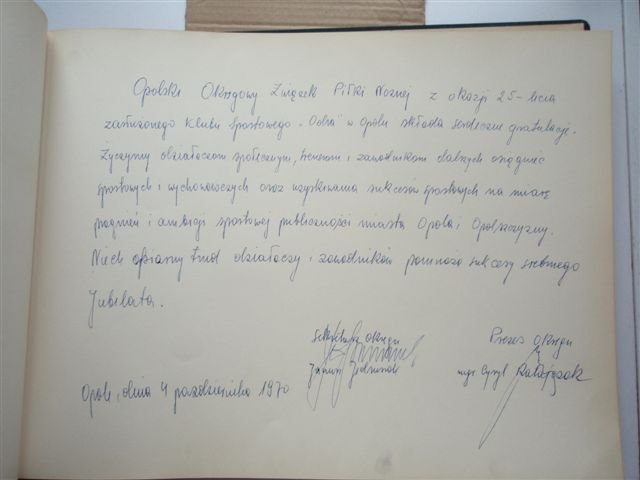 Opolski Okręgowy Związek Piłki Nożnej z okazji 25-lecia
zasłużonego Klubu Sportowego "Odra" w Opolu składa serdeczne gratulacje.
Życzymy działaczom społecznym, trenerom i zawodnikom dalszych osiągnięć
sportowych i wychowawczych oraz uzyskiwania sukcesów sportowych na miarę
pragnień i ambicji sportowej publiczności miasta Opola i Opolszczyzny.
Niech ofiarny trud działaczy i zawodników pomnaża sukcesy srebrnego
Jubilata.
Sekretarz Okręgu
Prezes Okręgu
mgr Cyryl Ratajczak
Opole, dnia 4 października 1970